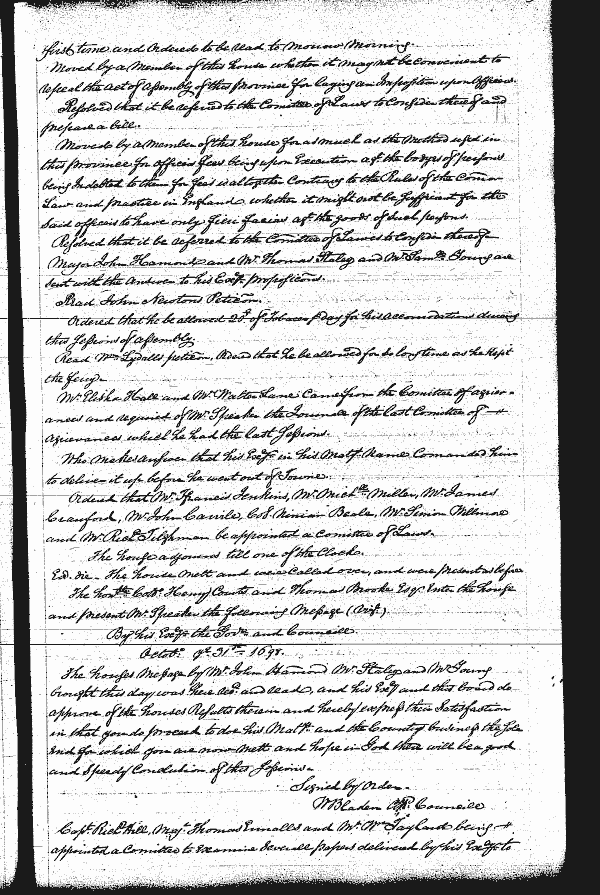 first time and Ordered to be read to morrow Morning.
Moved by a Member of this house whether it may not be convenient to
repeal the Act of Assembly of this Province for laying an Imposition upon Officers
Resolved that it be referred to the Comittee of Laws to Consider thereof and
prepare a bill.
Moved by a Member of this house for as much as the Method used in
this Province for officers fees being upon Execution agt the bodys of persons
being Indebted to them for fees is altogether Contrary to the Rules of the Comon
Law and practice in England, whether it might not be sufficient for the
said officers to have only fieri facias agt the goods of such persons.
Resolved that it be referred to the Comittee of Laws to Consider thereof
Major John Hamond and Mr Thomas Staley and Mr Saml Young are
sent with the Answer to his Excys proposicons.
Read John Newtons Peticon.
Ordered that he be allowed of Tobacco p day for his accomodations during
this Sessions of Assembly.
Read Wm Lydalls peticon, Order that he be allowed for so long time as he kept
the ferry.
Mr Elisha Hall and Mr Walter Lane Came from the Comittee of agriev-
ances and required of Mr Speaker the Journal of the last Comittee of
agrievances which he had the last Sessions.
Who makes answer that his Excy in his Matys Name Comanded him
to deliver it up before he went out of Towne.
Ordered that Mr Francis Jenkins, Mr Michll Miller, Mr James
Crawford, Mr John Cavile, Coll Ninian Beale, Mr Simon Wilmore
and Mr Richd Tilghman be appointed a Comittee of Laws.
The house adjourns till one of the Clock.
Eod. die. The house Mett and were Called over, and were present as before
The honble Coll Henry Courts and Thomas Brooke Esqr Enter the house
and present Mr Speaker the following Message (Vizt)
By his Excy the Govr and Councill
Octobr ye 31st 1698.
The houses Message by Mr John Hamond Mr Staley and Mr Young
brought this day was here recd and read, and his Excy and this board do
approve of the houses Results therein and hereby express their Satisfaction
in that you do proceed to doe his Matys and the Country business the sole
End for which you are now Mett and hope in God there will be a good
and Speedy Conclusion of this Sessions.
Signed by Order.
W Bladen Councill
Capt Richd Hill, Majr Thomas Ennalls and Mr Wm Taylard being
appointed a Comittee to Examine severall papers delivered by his Excy to